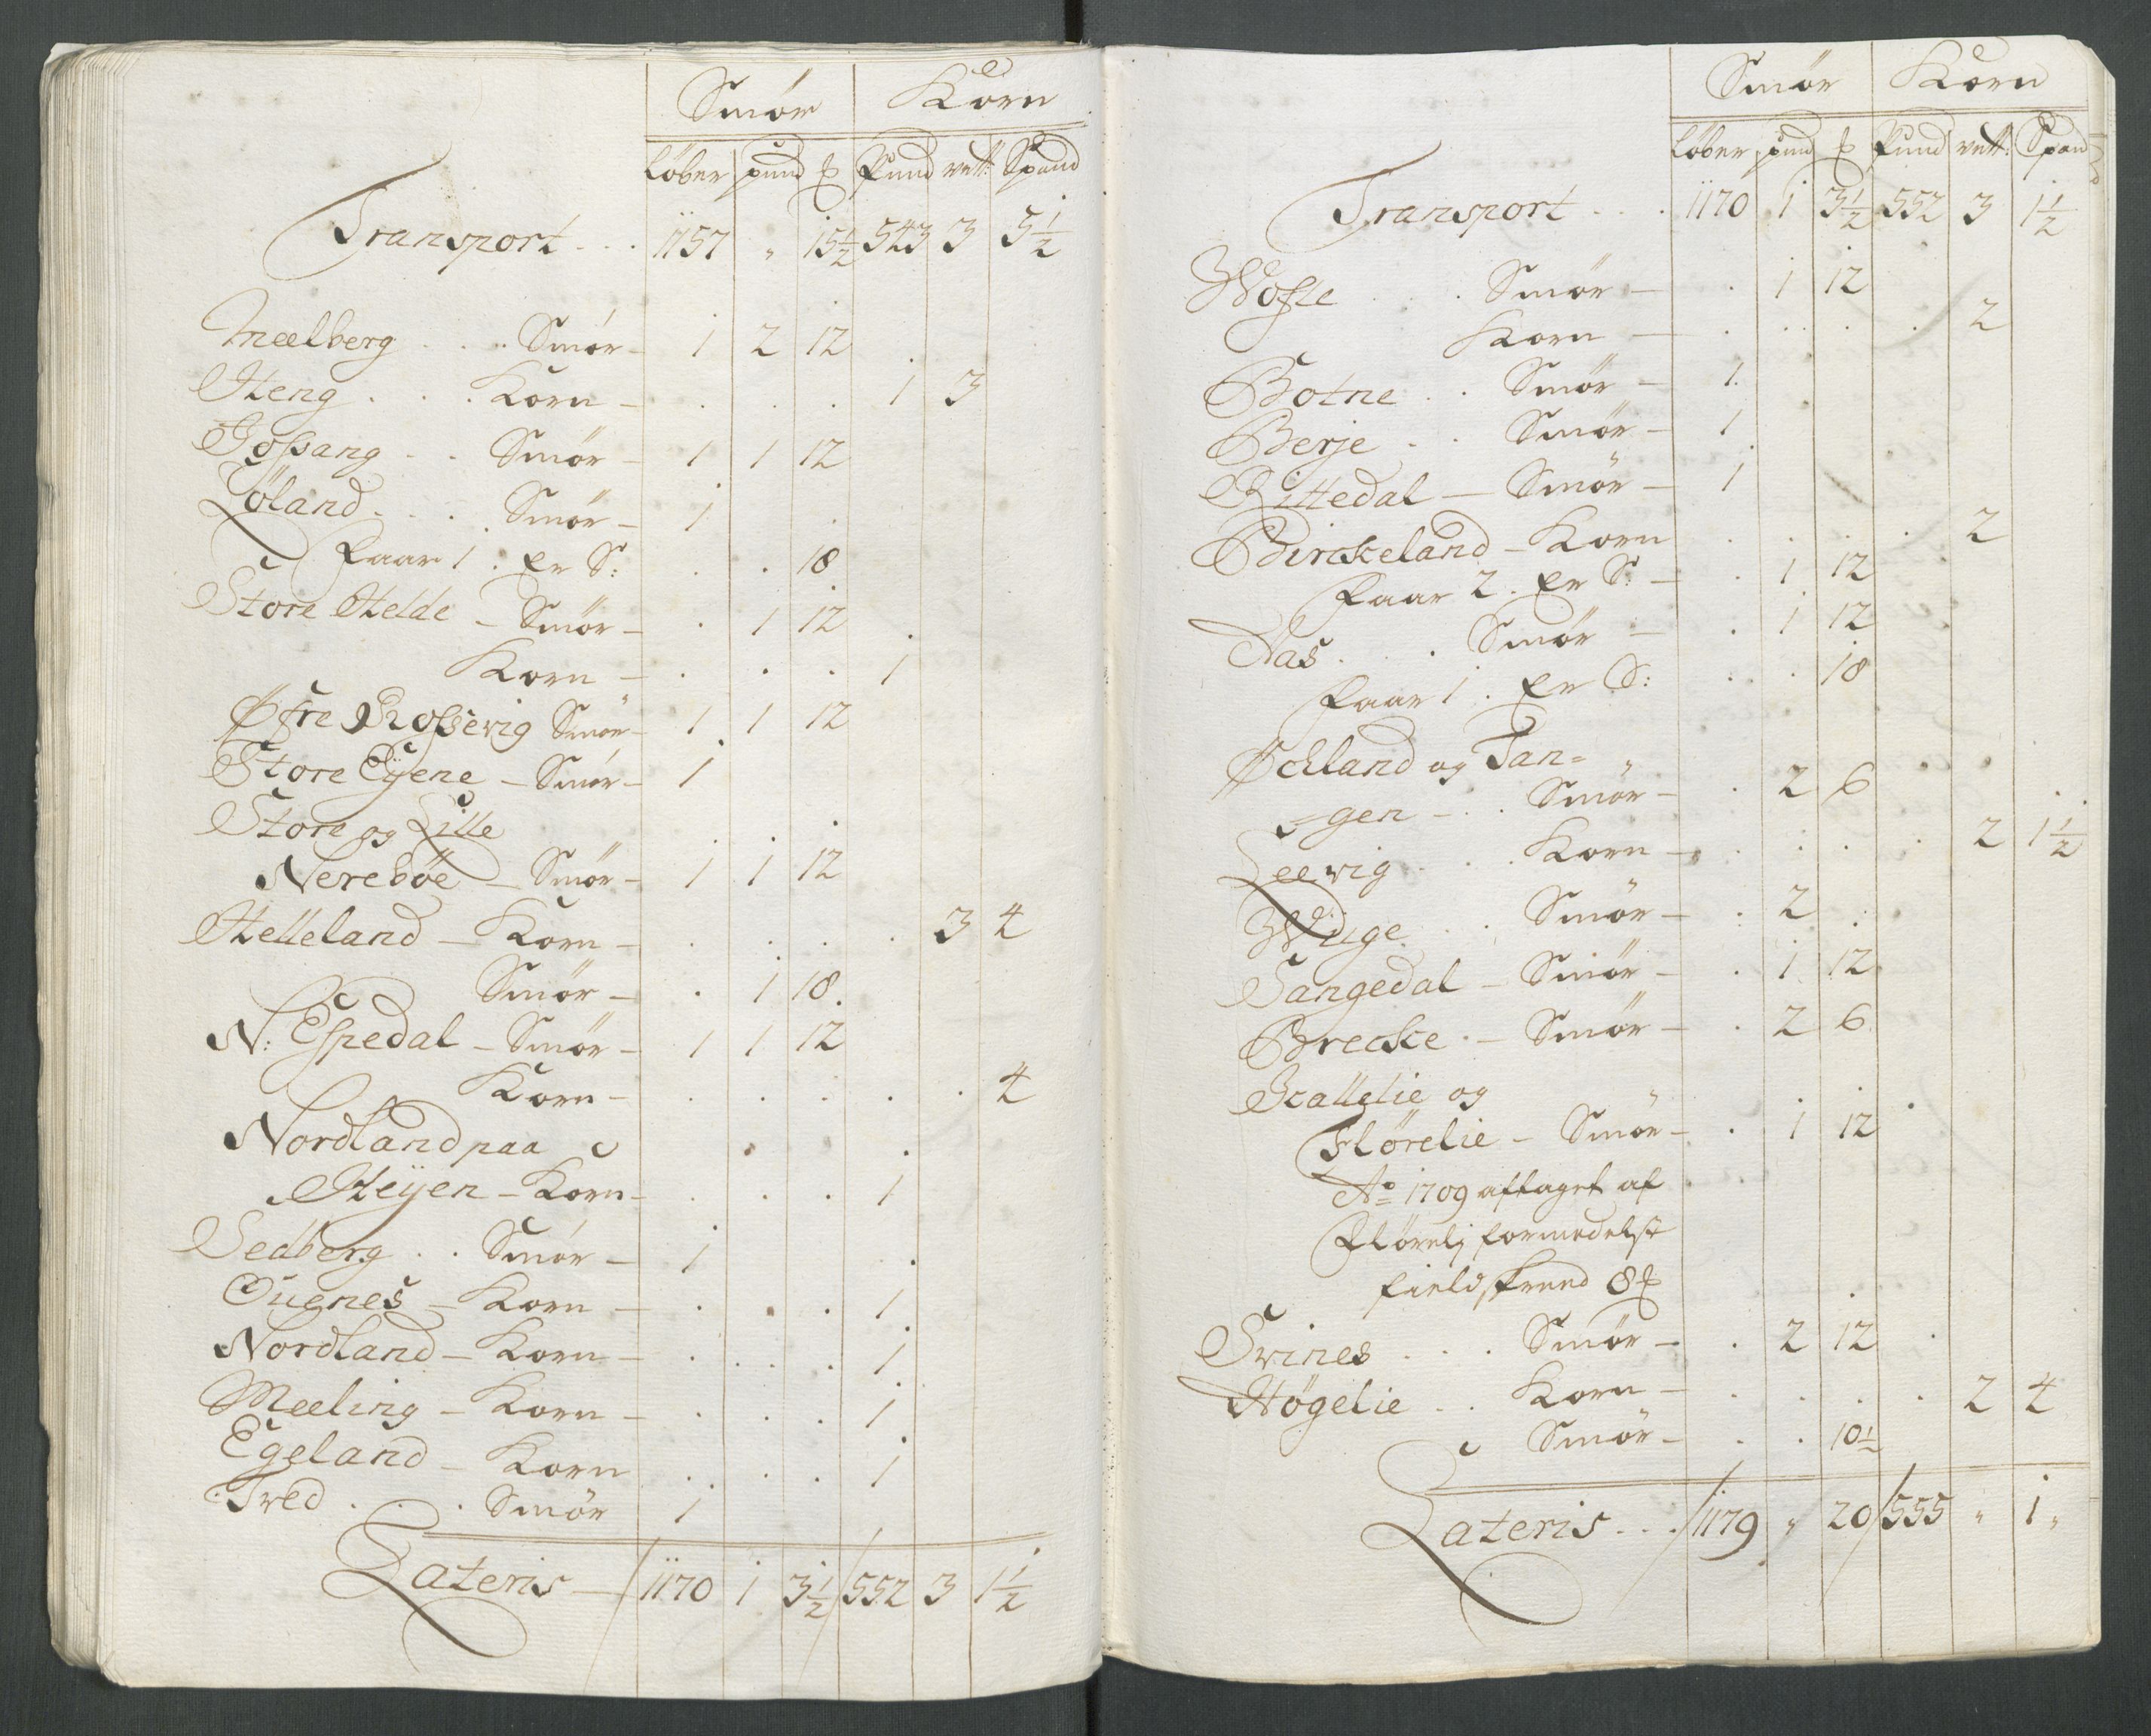 Smör Korn
Löber pund ℔ Pund vett: Spand
Transport . . . 1157 „ 15½ 543 3 5½
Meelberg . . . Smör – 1 2 12
Heng . . . Korn – . . . 1 3
Gossang . . Smör – 1 1 12
Löland . . . Smör – 1
Faar 1 . Er S: . . 18
Store Helde – Smör – . 1 12
Korn – . . . 1
Øfre Rossevig Smör – 1 1 12
Store Eyene – Smör – 1
Store og Lille
Nereböe – Smör – 1 1 12
Helleland – Korn – . . . . 3 4
Smör – . 1 18
N: Espedal – Smör – 1 1 12
Korn – . . . . . 4
Nordland paa
Heyen – Korn – . . . 1
Sedberg . . Smör – 1
Ouenes – Korn – . . . 1
Nordland – Korn – . . . 1
Meeling – Korn – . . . 1
Egeland – Korn . . . 1
Tved . . . Smör 1
Lateris – 1170 1 3½ 552 3 1½
Smör Korn
Löber pund ℔ Pund vett: Span
Transport . . . 1170 1 3½ 552 3 1½
Wosle . . . Smör – . 1 12
Korn – . . . . 2
Botne . . Smör – 1
Berje . . Smör – 1
Rittedal – Smör – 1
Birckeland – Korn . . . . 2
Faar 2 . Er S: – . 1 12
Aas . . . Smör – . 1 12
Faar 1 . Er S: . . 18
Ødland og Tan=
=gen – . . Smör – . 2 6
Leevig . . . Korn – . . . . 2 1½
Winge . . . Smör – . 2
Sangedal – Smör – . 1 12
Brecke . – Smör – . 2 6
Scallelie og
Flörelie – Smör – . 1 12
Ao 1709 aftaget af
Flörelj formedelst
field skreed 8 ℔
Svines . . . Smör – . 2 12
Högelie . . Korn – . . . . 2 4
Smör – . . 10½
Lateris . . . 1179 „ 20 555 „ 1 „